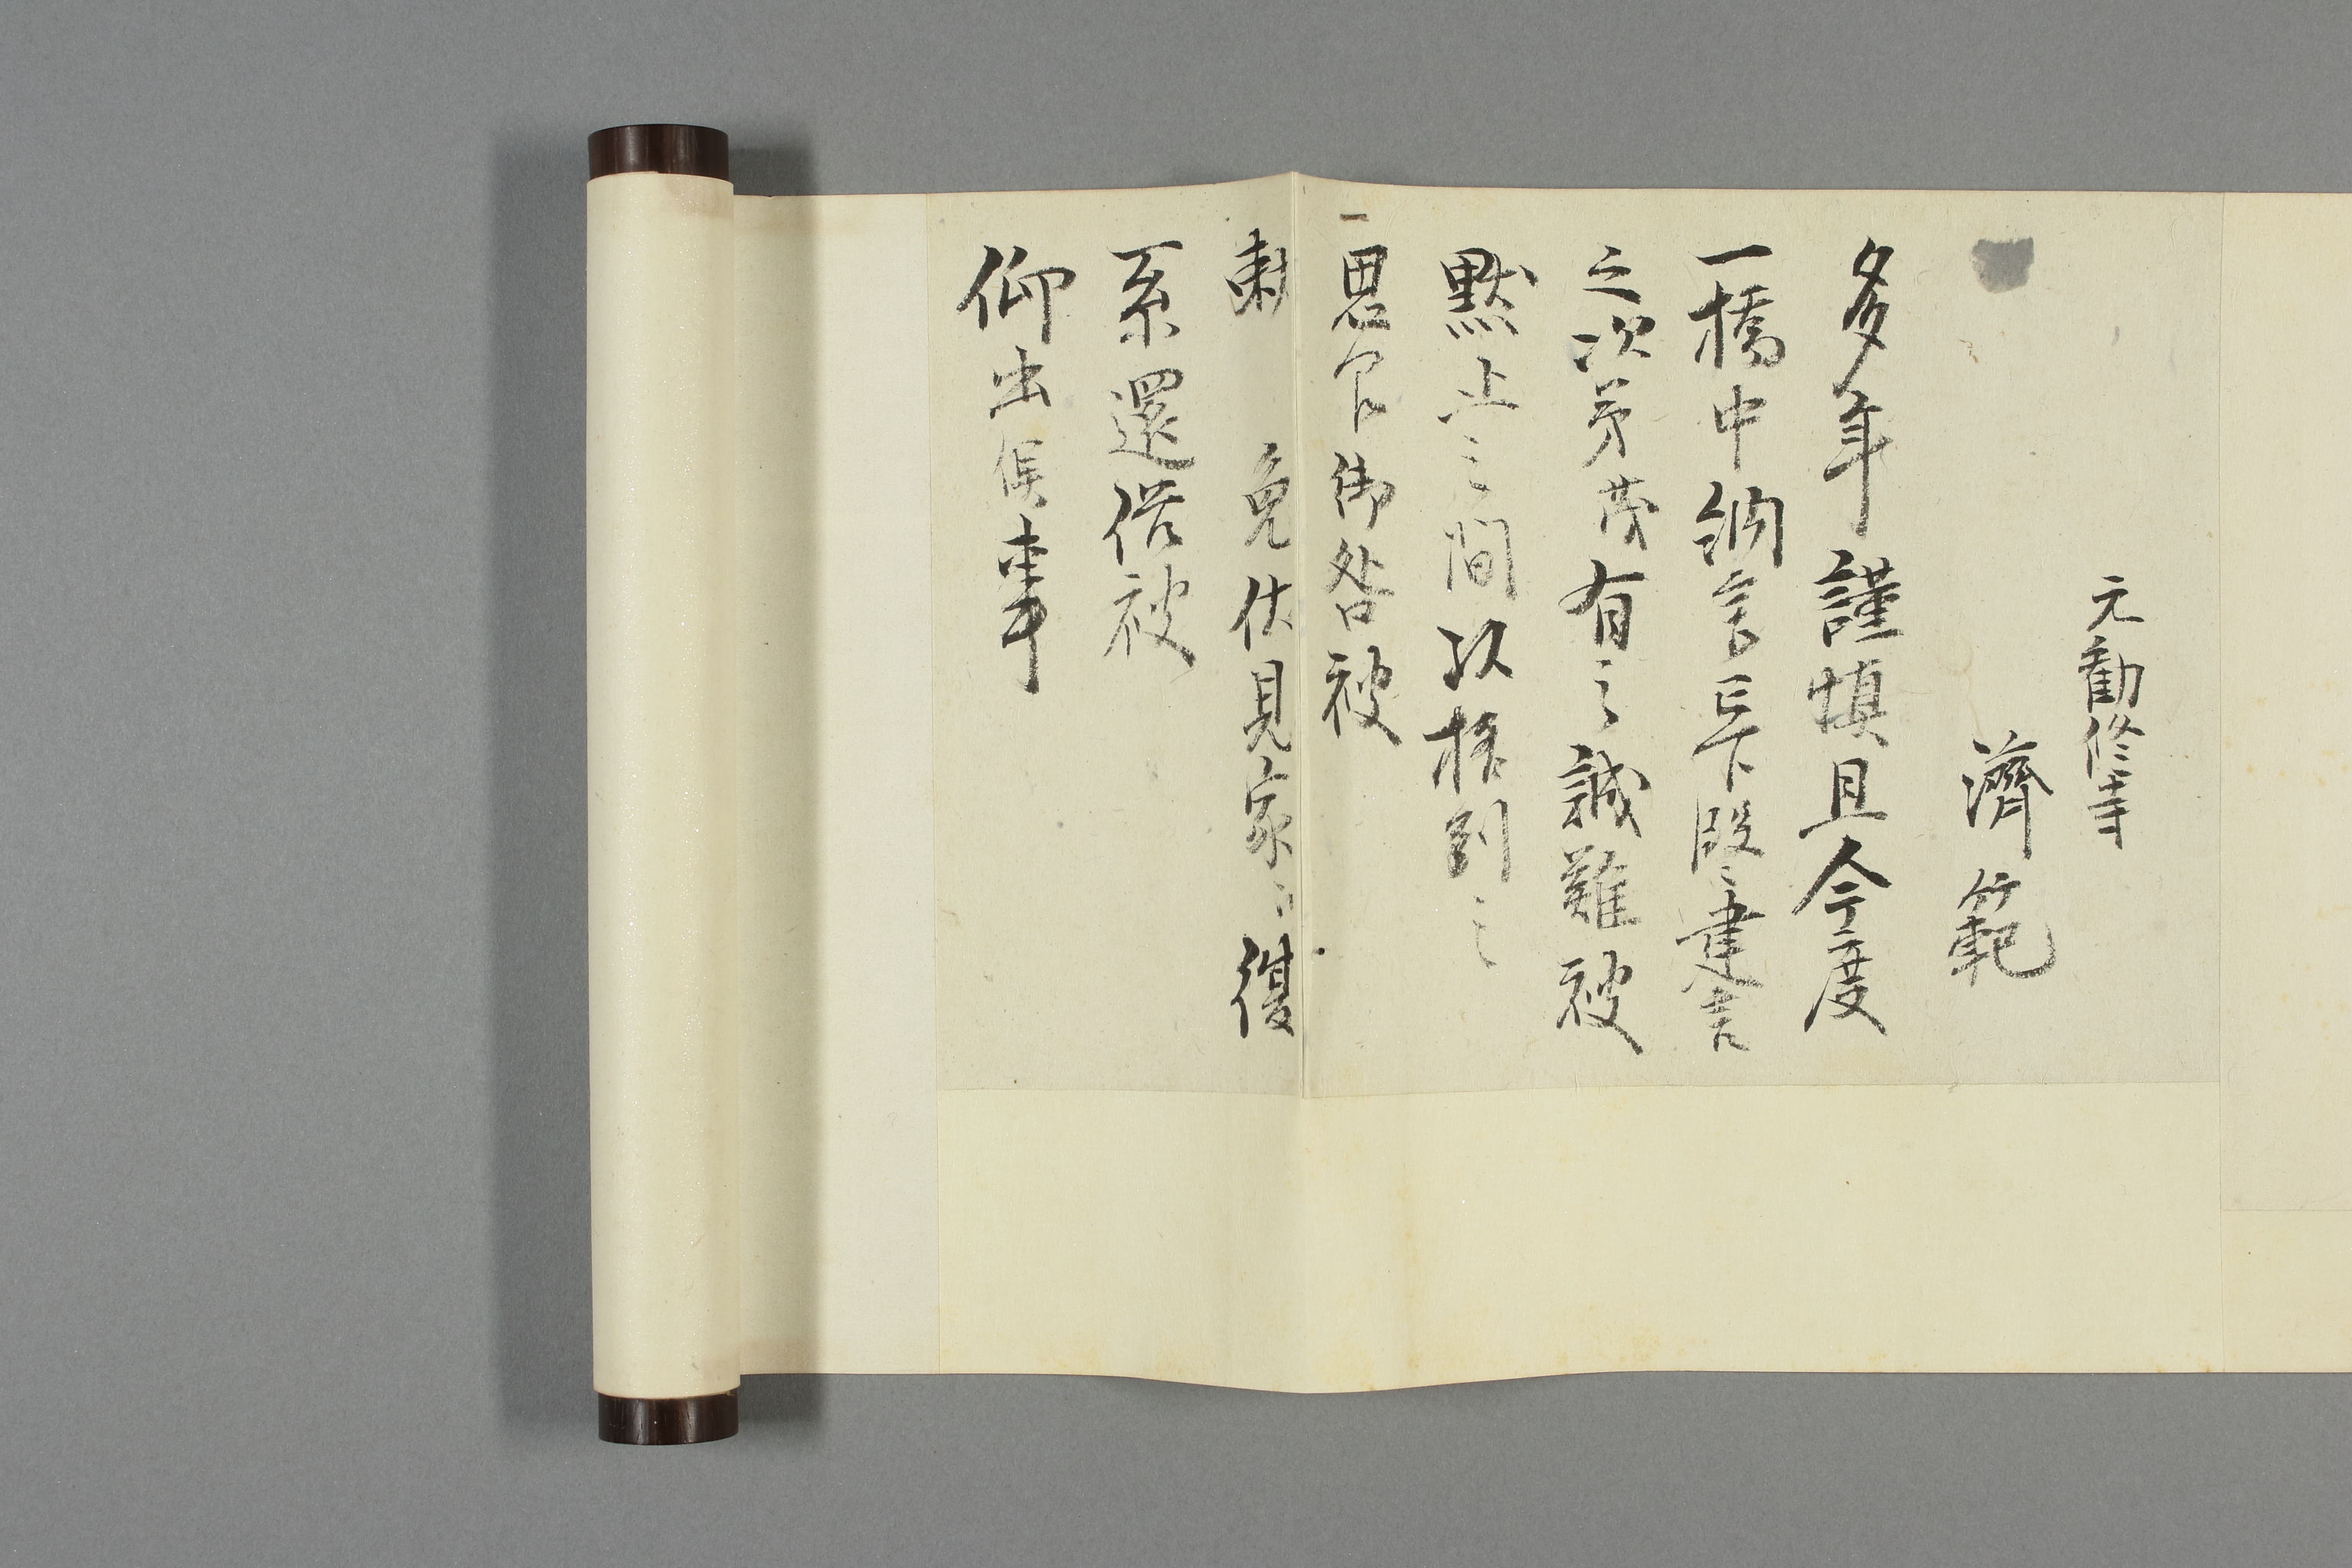 元勧修寺
濟範
多年謹慎且今度
一橋中納言已下段々建言
之次第茂有之誠難被
黙止之間以格別之
思食御咎被
免伏見家江復
系還俗被
仰出候事